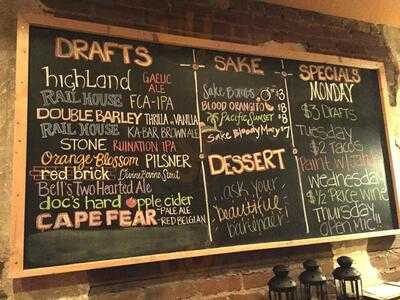 DRAFTS
highland GAELIC ALE
RAIL HOUSE FCA-IPA
DOUBLE BARLEY THRILLA in VANILLA
RAIL HOUSE KA-BAR BROWN ALE
STONE RUINATION IPA
Orange Blossom PILSNER
red brick Divine Bovine Stout
Bell's Two Hearted Ale
doc's hard apple cider
CAPE FEAR -PALE ALE
-RED BELGIAN
SAKE
Sake Bombs
BLOOD ORANGITO $8
Pacific SUNSET $8
Sake Bloody Mary $7
DESSERT
...ask your
beautiful
bartender!
SPECIALS
MONDAY
$3 Drafts
Tuesday
$2 Tacos
Paint w/
Wednesday
$1/2 Price Wine
Thursday
Open Mic!!